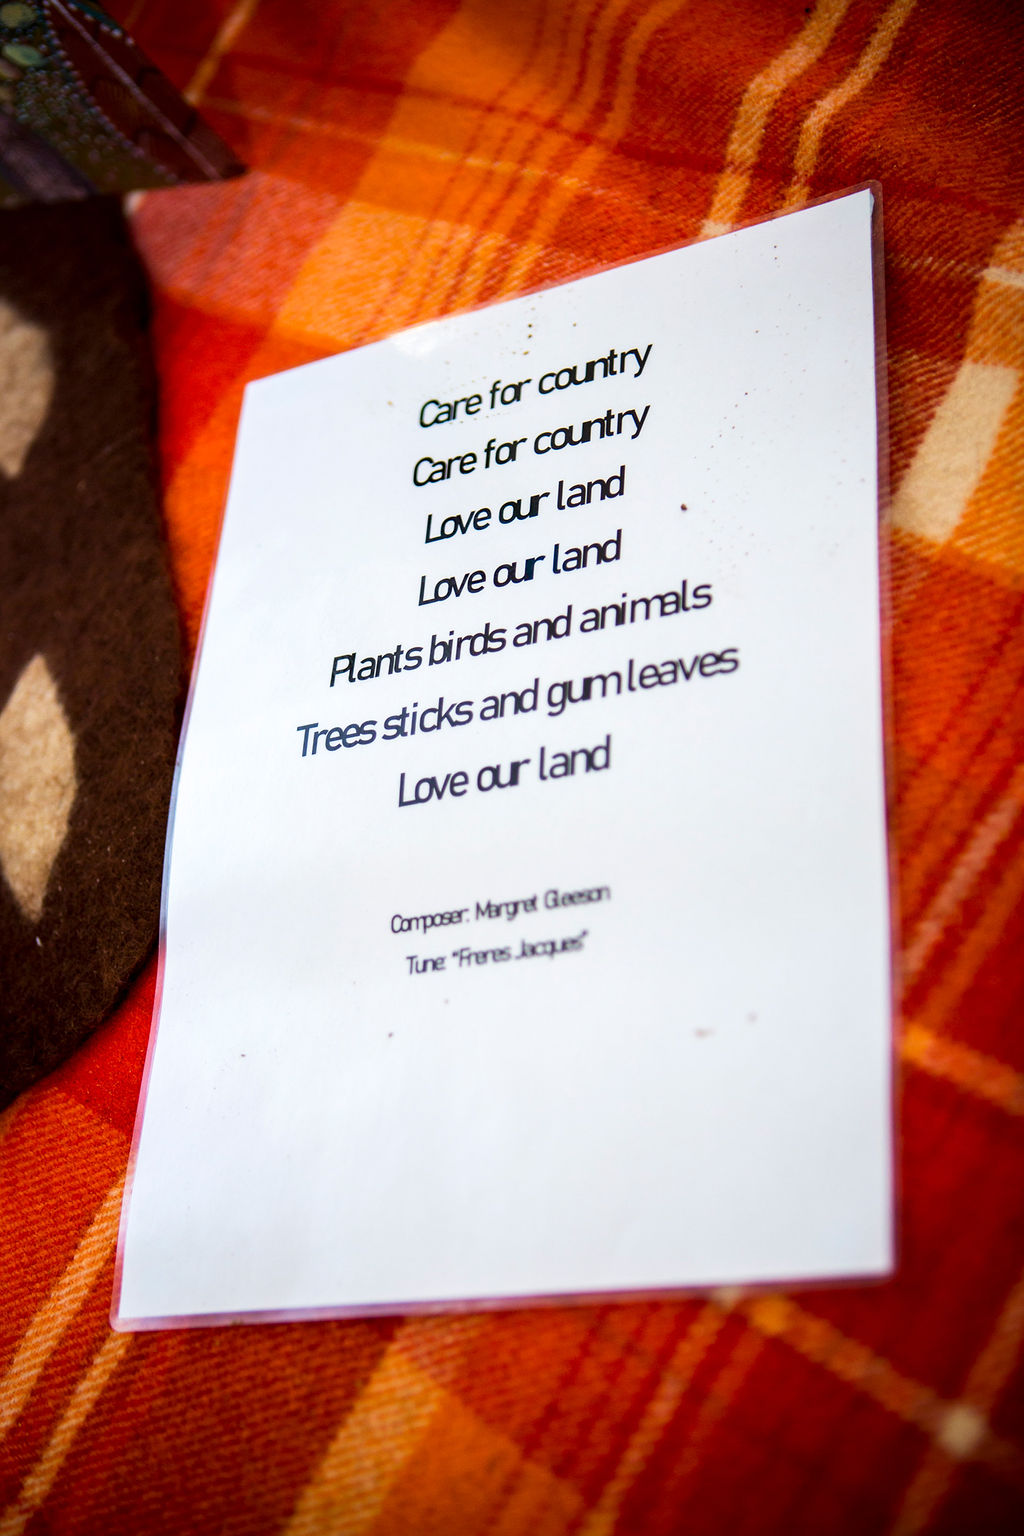 Care for country
Care for country
Love our land
Love our land
Plants birds and animals
Trees sticks and gum leaves
Love our land
Composer: Margret Gleeson
Tune: "Freres Jacques"